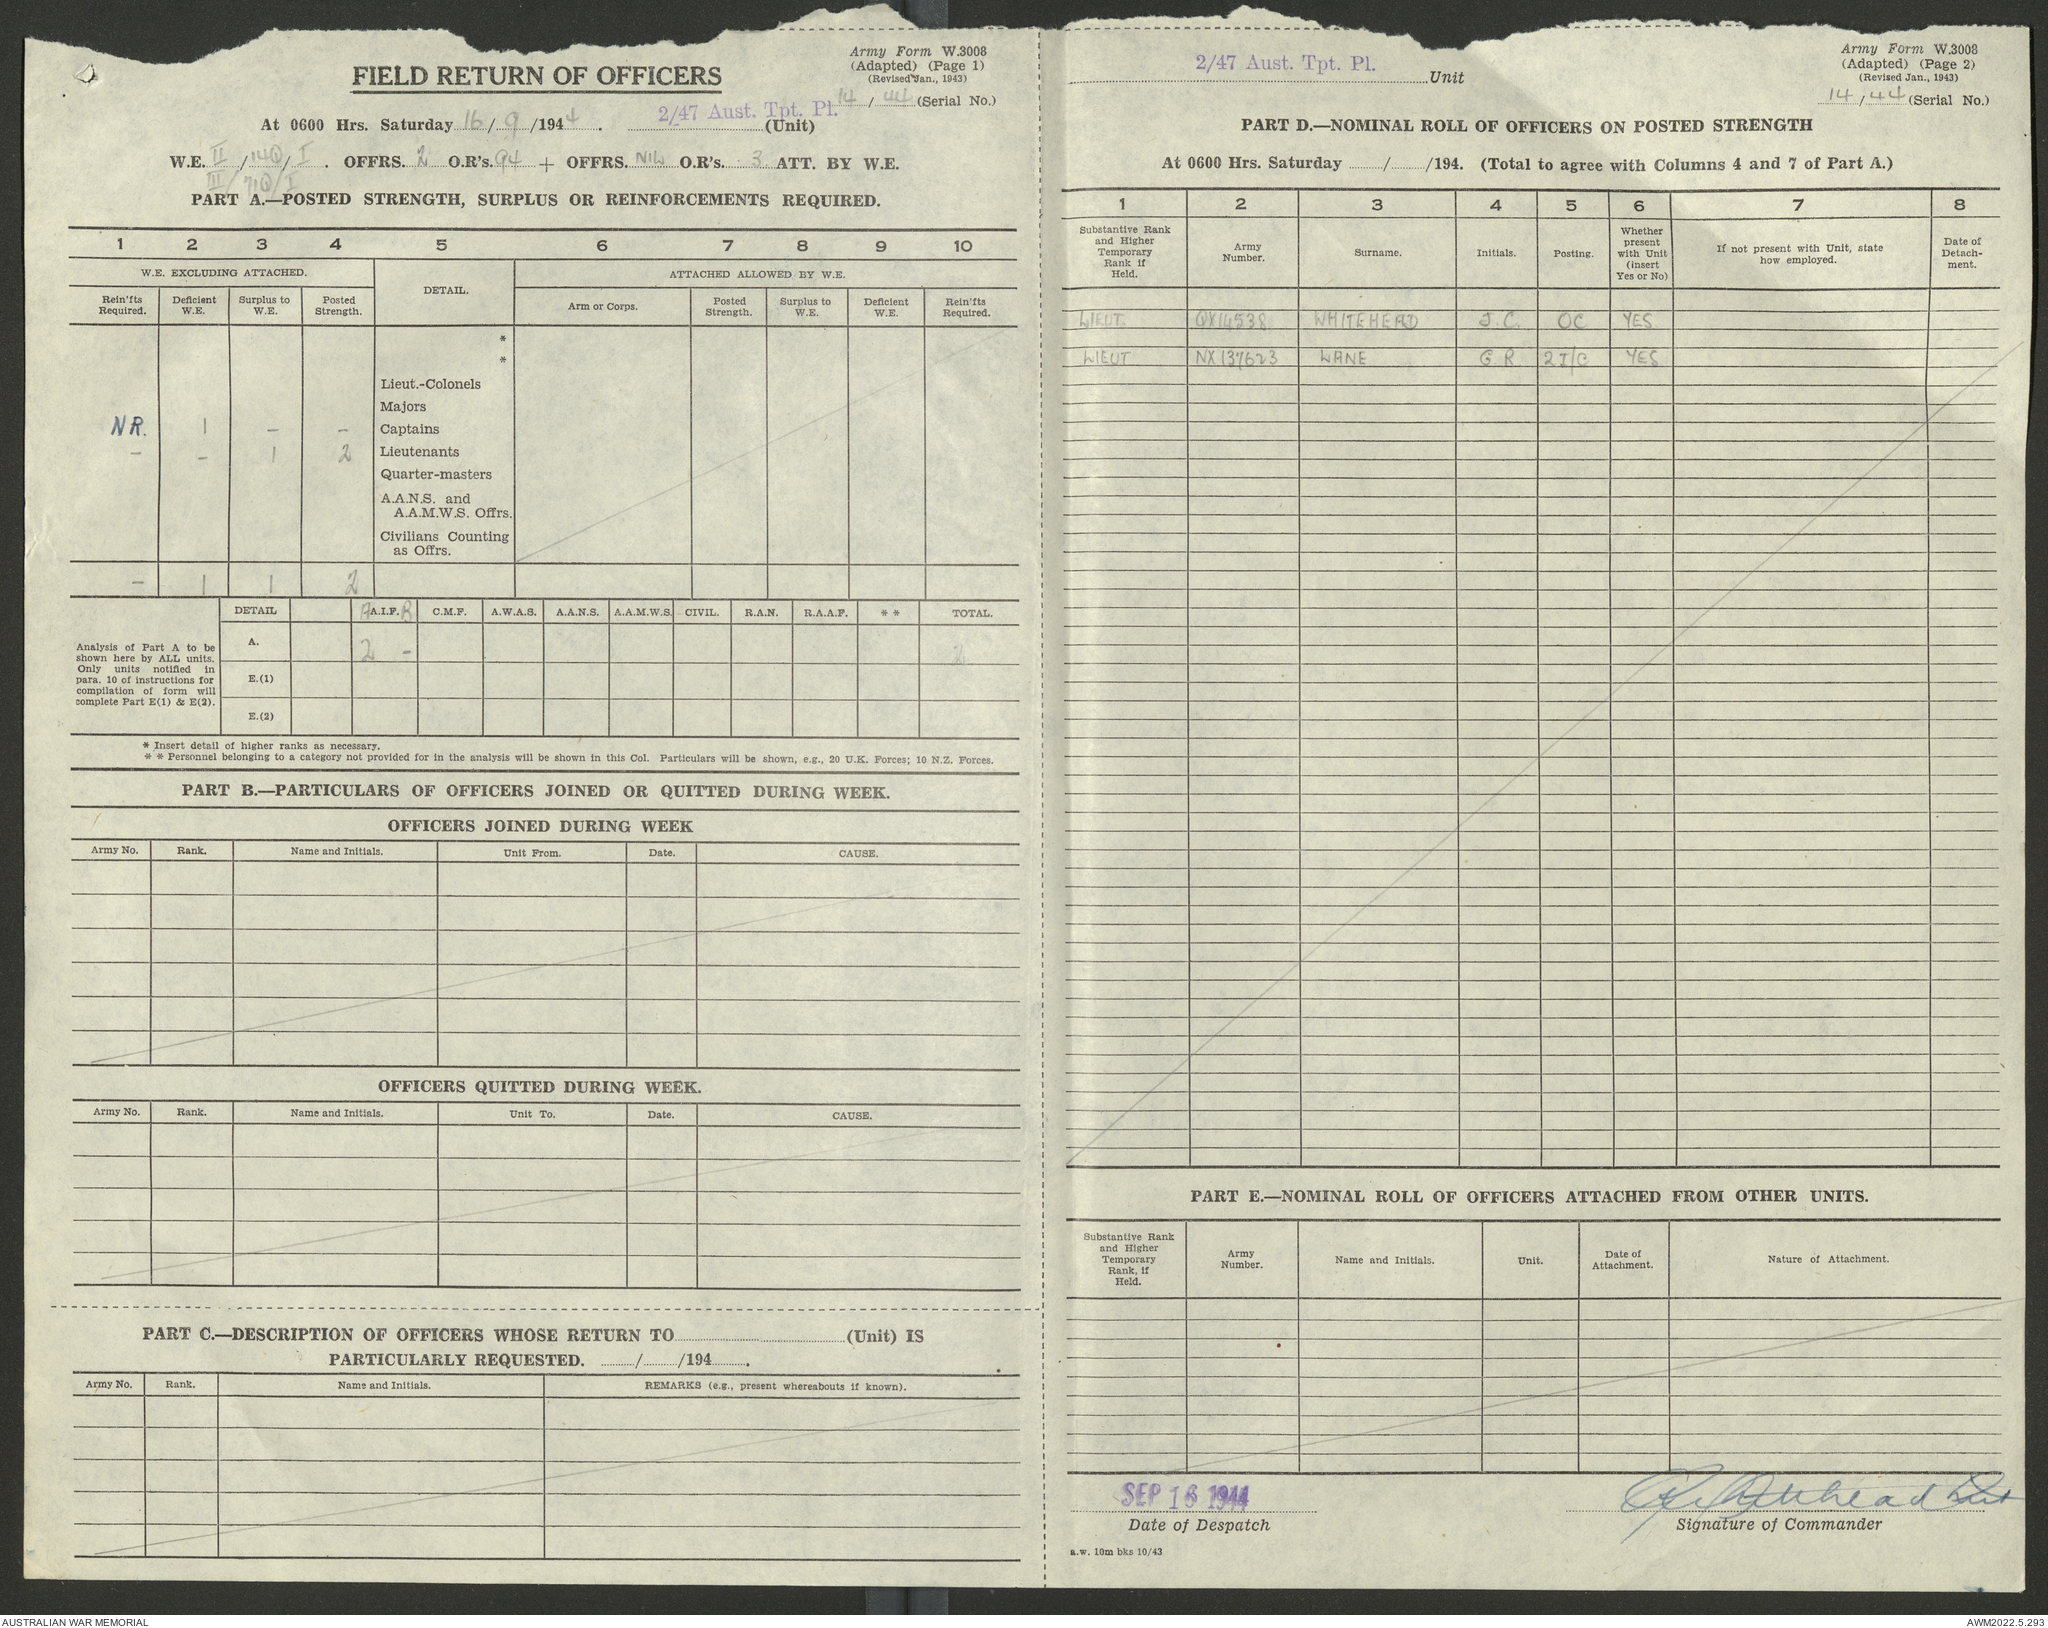 Army Form W.3008
(Adapted) (Page 1)
(Revised Jan., 1943)
FIELD RETURN OF OFFICERS
14 / 44 (Serial No.)
At 0600 Hrs. Saturday 16 / 9 /1944. 2/47 Aust. Tpt. Pl. (Unit)
W.E. II / 14Q / I . OFFRS. 2 O.R's. 94 + OFFRS. NIL O.R's. 3 ATT. BY W.E.
III / 71Q / I
PART A.—POSTED STRENGTH, SURPLUS OR REINFORCEMENTS REQUIRED.
1 2 3 4 5 6 7 8 9 10
W.E. EXCLUDING ATTACHED. DETAIL. ATTACHED ALLOWED BY W.E.
Rein'fts Required. Deficient W.E. Surplus to W.E. Posted Strength. Arm or Corps. Posted Strength. Surplus to W.E. Deficient W.E. Rein'fts Required.
*
*
Lieut.-Colonels
Majors
NR. 1 – – Captains
– – 1 2 Lieutenants
Quarter-masters
A.A.N.S. and
A.A.M.W.S. Offrs.
Civilians Counting
as Offrs.
– 1 1 2
DETAIL A A.I.F. B C.M.F. A.W.A.S. A.A.N.S. A.A.M.W.S. CIVIL. R.A.N. R.A.A.F. * * TOTAL.
Analysis of Part A to be
shown here by ALL units.
Only units notified in
para. 10 of instructions for
compilation of form will
complete Part E(1) & E(2).
A. 2 – 2
E.(1)
E.(2)
* Insert detail of higher ranks as necessary.
* * Personnel belonging to a category not provided for in the analysis will be shown in this Col. Particulars will be shown, e.g., 20 U.K. Forces; 10 N.Z. Forces.
PART B.—PARTICULARS OF OFFICERS JOINED OR QUITTED DURING WEEK.
OFFICERS JOINED DURING WEEK
Army No. Rank. Name and Initials. Unit From. Date. CAUSE.
OFFICERS QUITTED DURING WEEK.
Army No. Rank. Name and Initials. Unit To. Date. CAUSE.
PART C.—DESCRIPTION OF OFFICERS WHOSE RETURN TO (Unit) IS
PARTICULARLY REQUESTED. / /194 .
Army No. Rank. Name and Initials. REMARKS (e.g., present whereabouts if known).
2/47 Aust. Tpt. Pl. Unit
Army Form W.3008
(Adapted) (Page 2)
(Revised Jan., 1943)
14/44 (Serial No.)
PART D.—NOMINAL ROLL OF OFFICERS ON POSTED STRENGTH
At 0600 Hrs. Saturday / /194. (Total to agree with Columns 4 and 7 of Part A.)
1 2 3 4 5 6 7 8
Substantive Rank and Higher Temporary Rank if Held. Army Number. Surname. Initials. Posting. Whether present with Unit (insert Yes or No) If not present with Unit, state how employed. Date of Detach-ment.
LIEUT. QX14538 WHITEHEAD J.C. OC YES
LIEUT NX137623 LANE G R 2 I/C YES
PART E.—NOMINAL ROLL OF OFFICERS ATTACHED FROM OTHER UNITS.
Substantive Rank and Higher Temporary Rank, if Held. Army Number. Name and Initials. Unit. Date of Attachment. Nature of Attachment.
SEP 16 1944
Date of Despatch
Whitehead Lieut
Signature of Commander
a.w. 10m bks 10/43
AUSTRALIAN WAR MEMORIAL
AWM2022.5.293